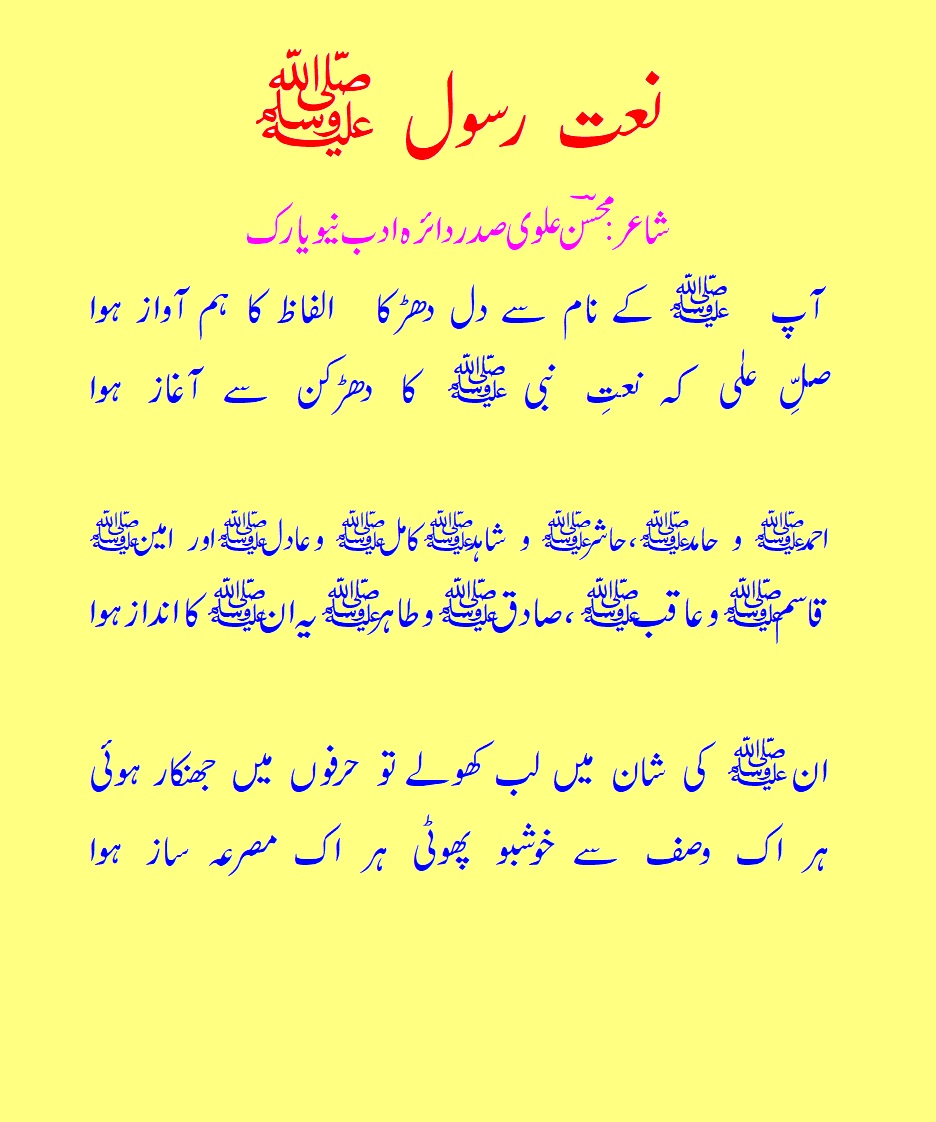 نعت رسول ﷺ
شاعر: محسنؔ علوی صدر دائرہ ادب نیویارک
آپ ﷺ کے نام سے دل دھڑکا الفاظ کا ہم آواز ہوا
صلِّ علٰی کہ نعتِ نبی ﷺ کا دھڑکن سے آغاز ہوا
احمدﷺ و حامدﷺ،حاشرﷺ و شاہدﷺکاملﷺ وعادلﷺاور امینﷺ
قاسمﷺ وعاقبﷺ ،صادقﷺ وطاہرﷺیہ انﷺ کا انداز ہوا
انﷺ کی شان میں لب کھولے تو حرفوں میں جھنکار ہوئی
ہر اک وصف سے خوشبو پھوٹی ہر اک مصرعہ ساز ہوا